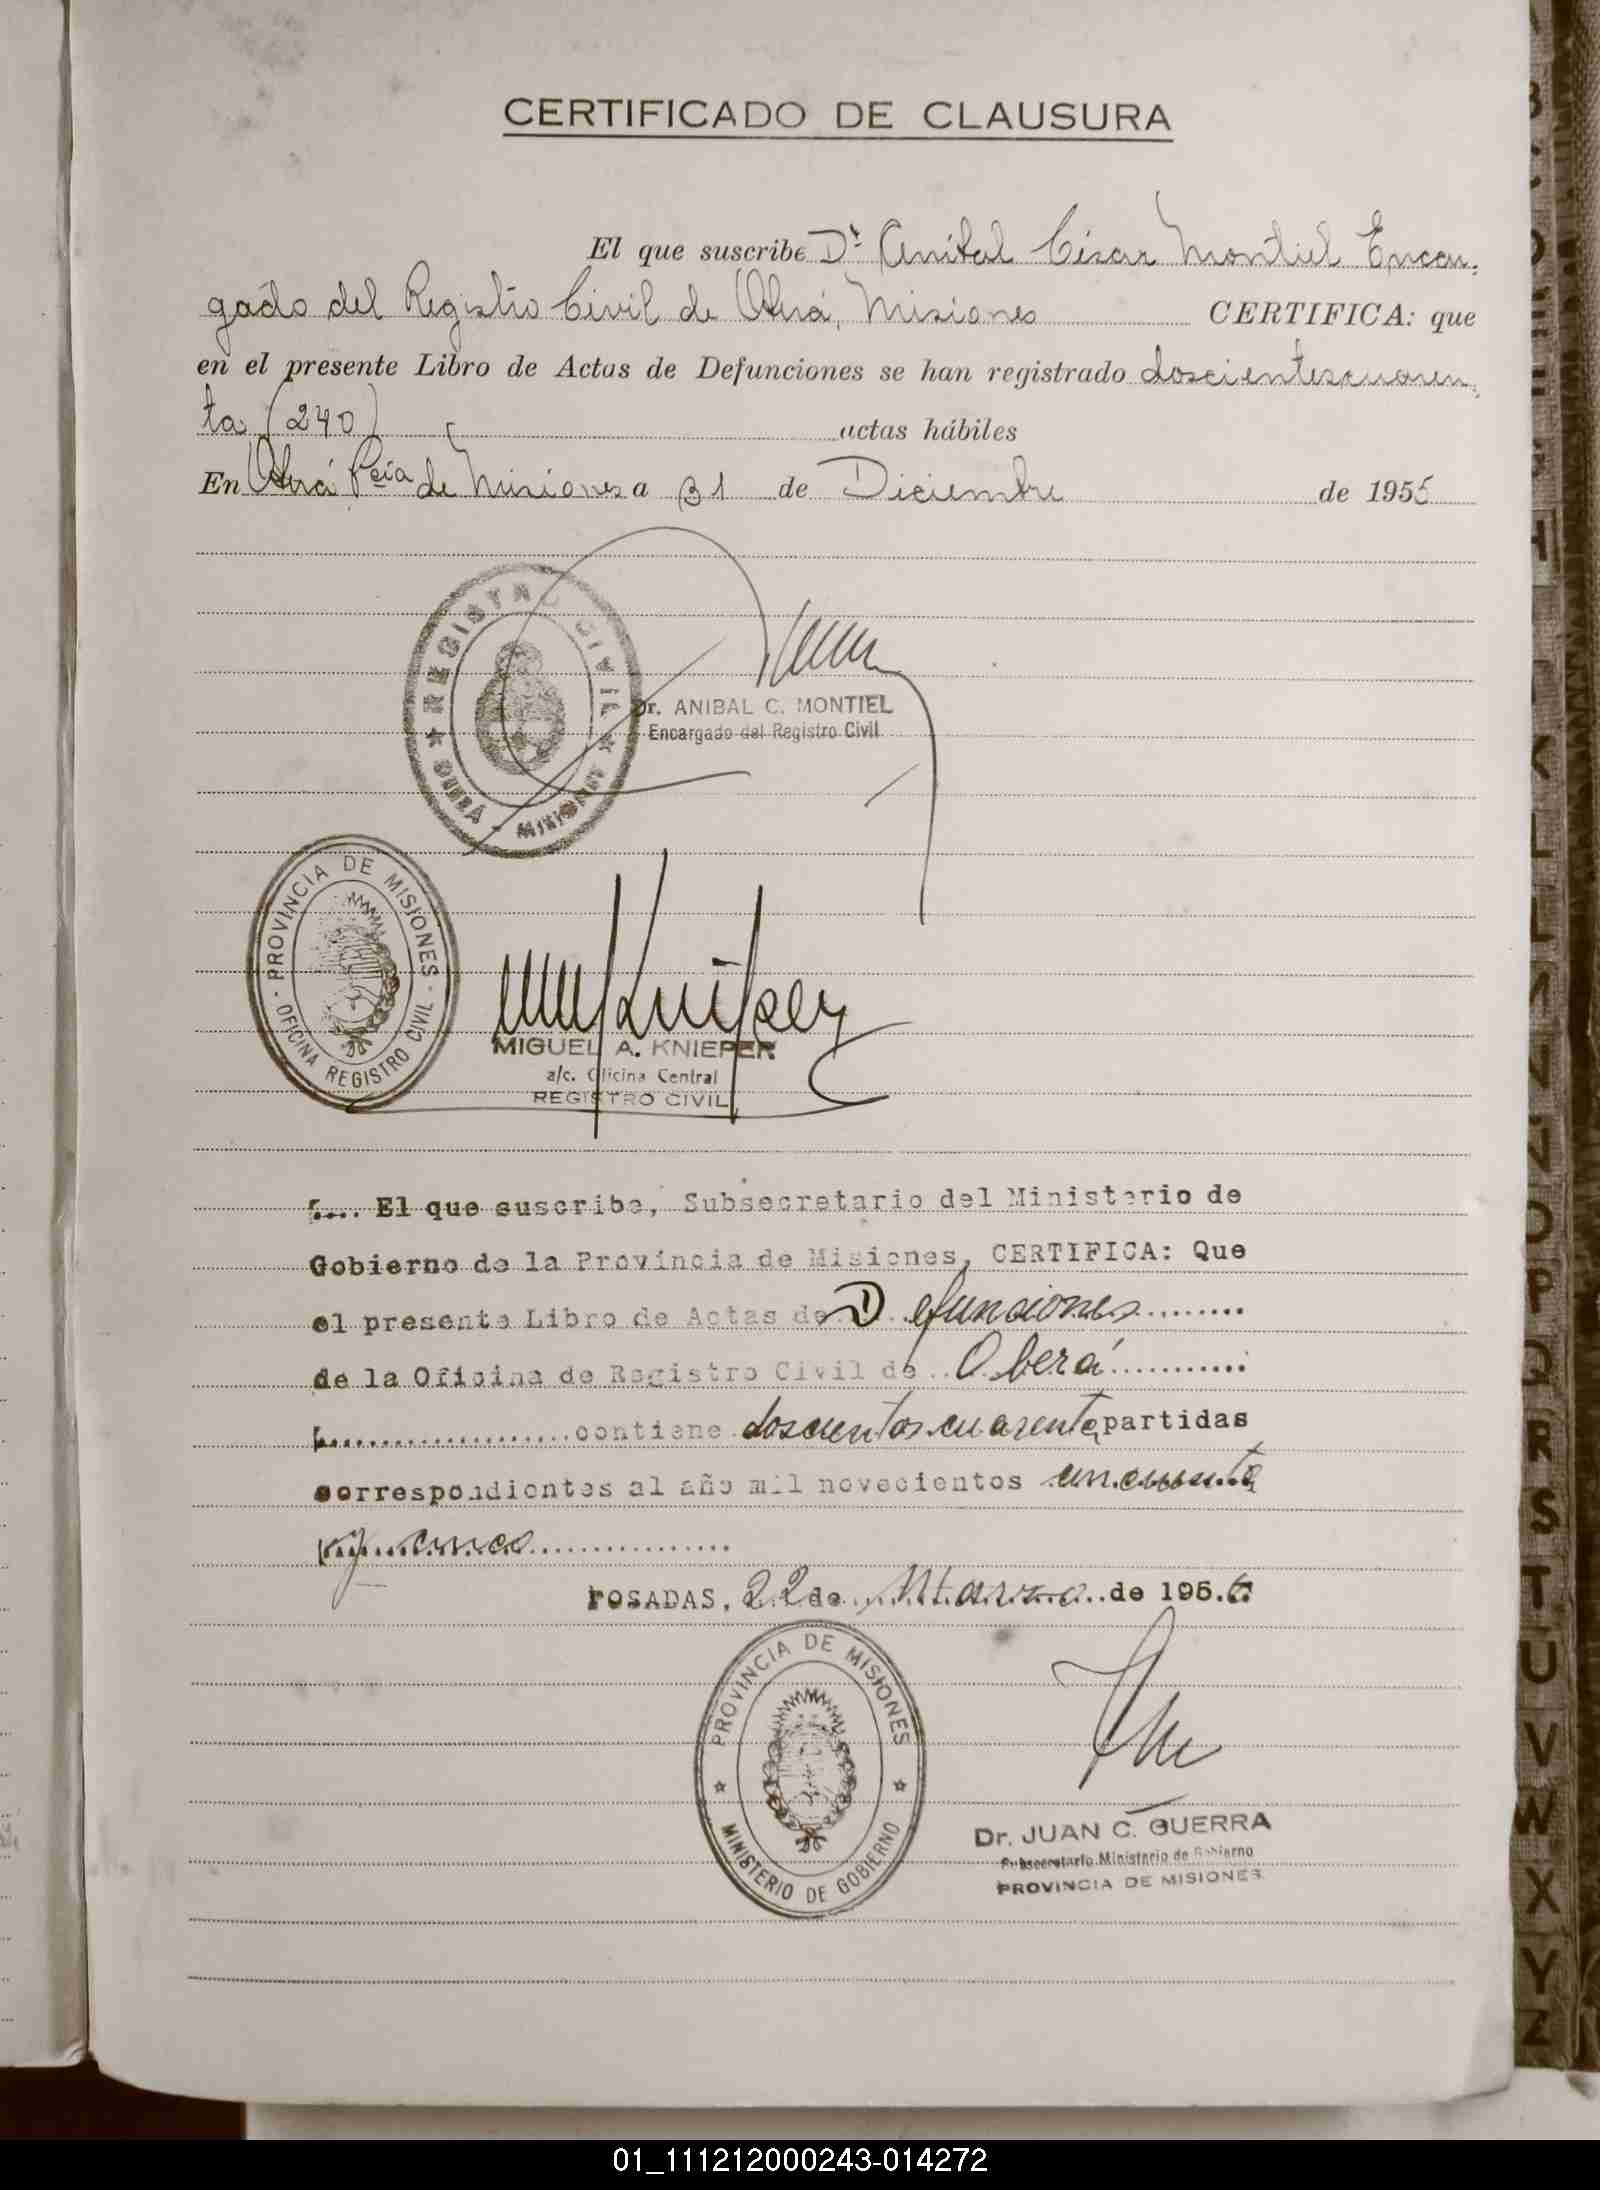 CERTIFICADO DE CLAUSURA
El que suscribe Dr. Anibal César Montiel Encar-
gado del Registro Civil de Oberá, Misiones CERTIFICA: que
en el presente Libro de Actas de Defunciones se han registrado doscientos cuaren-
ta (240) actas hábiles
En Oberá Pcia de Misiones a 31 de Diciembre de 1955
REGISTRO CIVIL
OBERÁ - MISIONES
Dr. ANIBAL C. MONTIEL
Encargado del Registro Civil
PROVINCIA DE MISIONES
OFICINA REGISTRO CIVIL
MIGUEL A. KNIEPER
a/c. Oficina Central
REGISTRO CIVIL
.... El que suscribe, Subsecretario del Ministerio de
Gobierno de la Provincia de Misiones, CERTIFICA: Que
el presente Libro de Actas de Defunciones
de la Oficina de Registro Civil de Oberá
contiene doscientos cuarenta partidas
correspondientes al año mil novecientos cincuenta
y cinco
POSADAS, 22 de Marzo de 1956
PROVINCIA DE MISIONES
MINISTERIO DE GOBIERNO
Dr. JUAN C. GUERRA
Subsecretario Ministerio de Gobierno
PROVINCIA DE MISIONES
P
Q
R
S
T
U
V
W
X
Y
Z
01_111212000243-014272